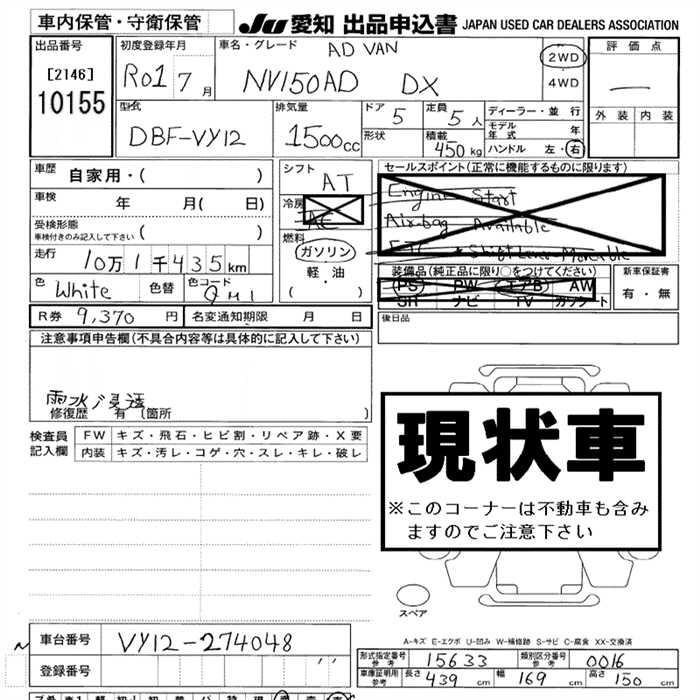 車内保管・守衛保管
JU 愛知 出品申込書 JAPAN USED CAR DEALERS ASSOCIATION
出品番号 初度登録年月 車名・グレード AD VAN 2WD 評価点
[2146] R01 7月 NV150AD DX 4WD
10155
外装 内装
型式 排気量 ドア 5 定員 5人 ディーラー・並行
DBF-VY12 1500cc 形状 積載 450kg モデル年式 年
ハンドル 左・右
車歴 自家用・( ) シフト AT セールスポイント(正常に機能するものに限ります)
車検 年 月( 日) 冷房 AC Engine Start
受検形態 Air-bag Available
車検付きのみ記入して下さい ( ) 燃料
走行 10万1千435km ガソリン 装備品(純正品に限り○をつけてください) 新車保証書
軽・油 (PS) PW エアB AW 有・無
色 White 色替 色コード QM1 ( ・ ) SR ナビ TV カセット
R券 9,370円 名変通知期限 月 日 後日品
注意事項申告欄(不具合内容等は具体的に記入して下さい)
雨水浸透
修復歴 有(箇所 )
検査員記入欄 FW キズ・飛石・ヒビ割・リペア跡・X要
内装 キズ・汚レ・コゲ・穴・スレ・キレ・破レ
現状車
※このコーナーは不動車も含み
ますのでご注意下さい
スペア
A-キズ E-エクボ U-凹み W-補修跡 S-サビ C-腐食 XX-交換済
車台番号 VY12-274048
登録番号
形式指定番号 参考 15633 類別区分番号 参考 0016
車庫証明用 参考 長さ 439cm 幅 169cm 高さ 150cm